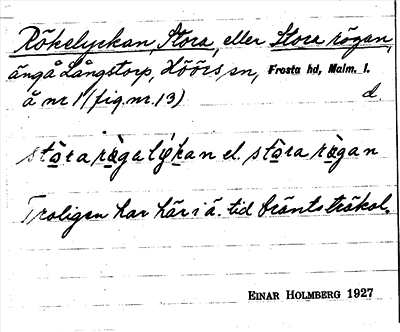 Rökelyckan, Stora, eller Stora rögan,
äng å Långstorp, Höörs sn, Frosta hd, Malm. l.
å nr 1 (fig. nr. 13) d.
stora rögalykan el. stora rögan
Troligen har här i ä. tid bränts träkol.
EINAR HOLMBERG 1927